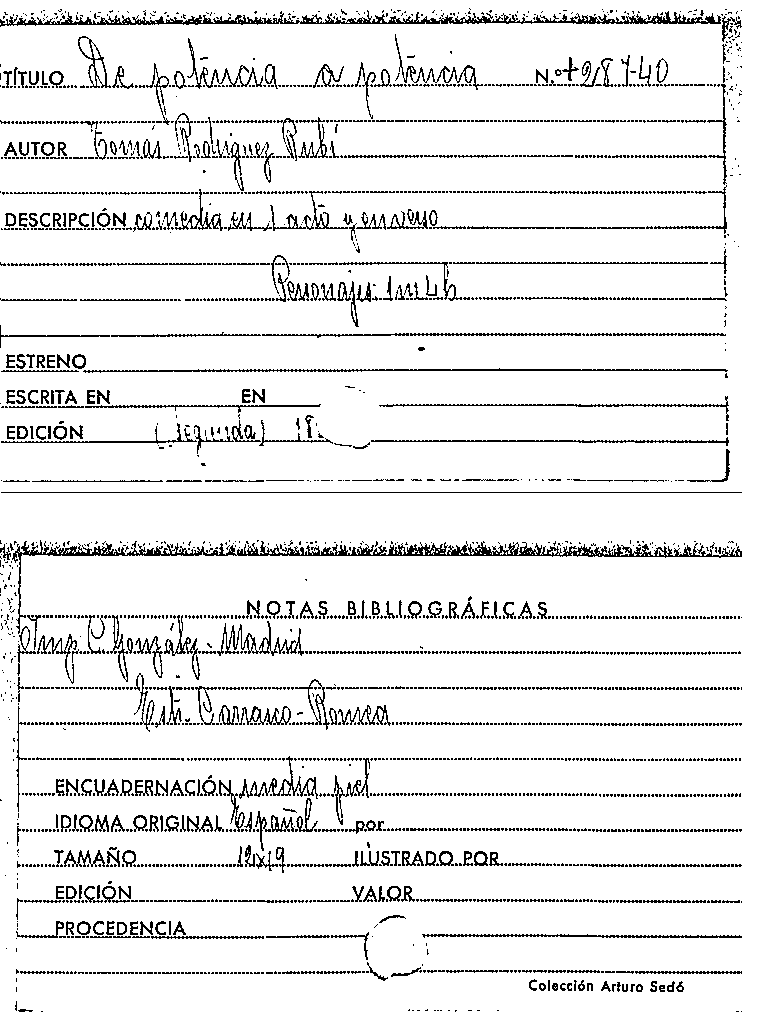 TÍTULO De potencia a potencia N.º +287-40
AUTOR Tomás Rodriguez Rubí
DESCRIPCIÓN comedia en 1 acto y en verso
Personajes: 1m 4h
ESTRENO
ESCRITA EN EN
EDICIÓN (Segunda) 18
NOTAS BIBLIOGRÁFICAS
Imp C. González - Madrid
Estr. Carrasco - Romea
ENCUADERNACIÓN media piel
IDIOMA ORIGINAL Español por
TAMAÑO 12x19 ILUSTRADO POR
EDICIÓN VALOR
PROCEDENCIA
Colección Arturo Sedó